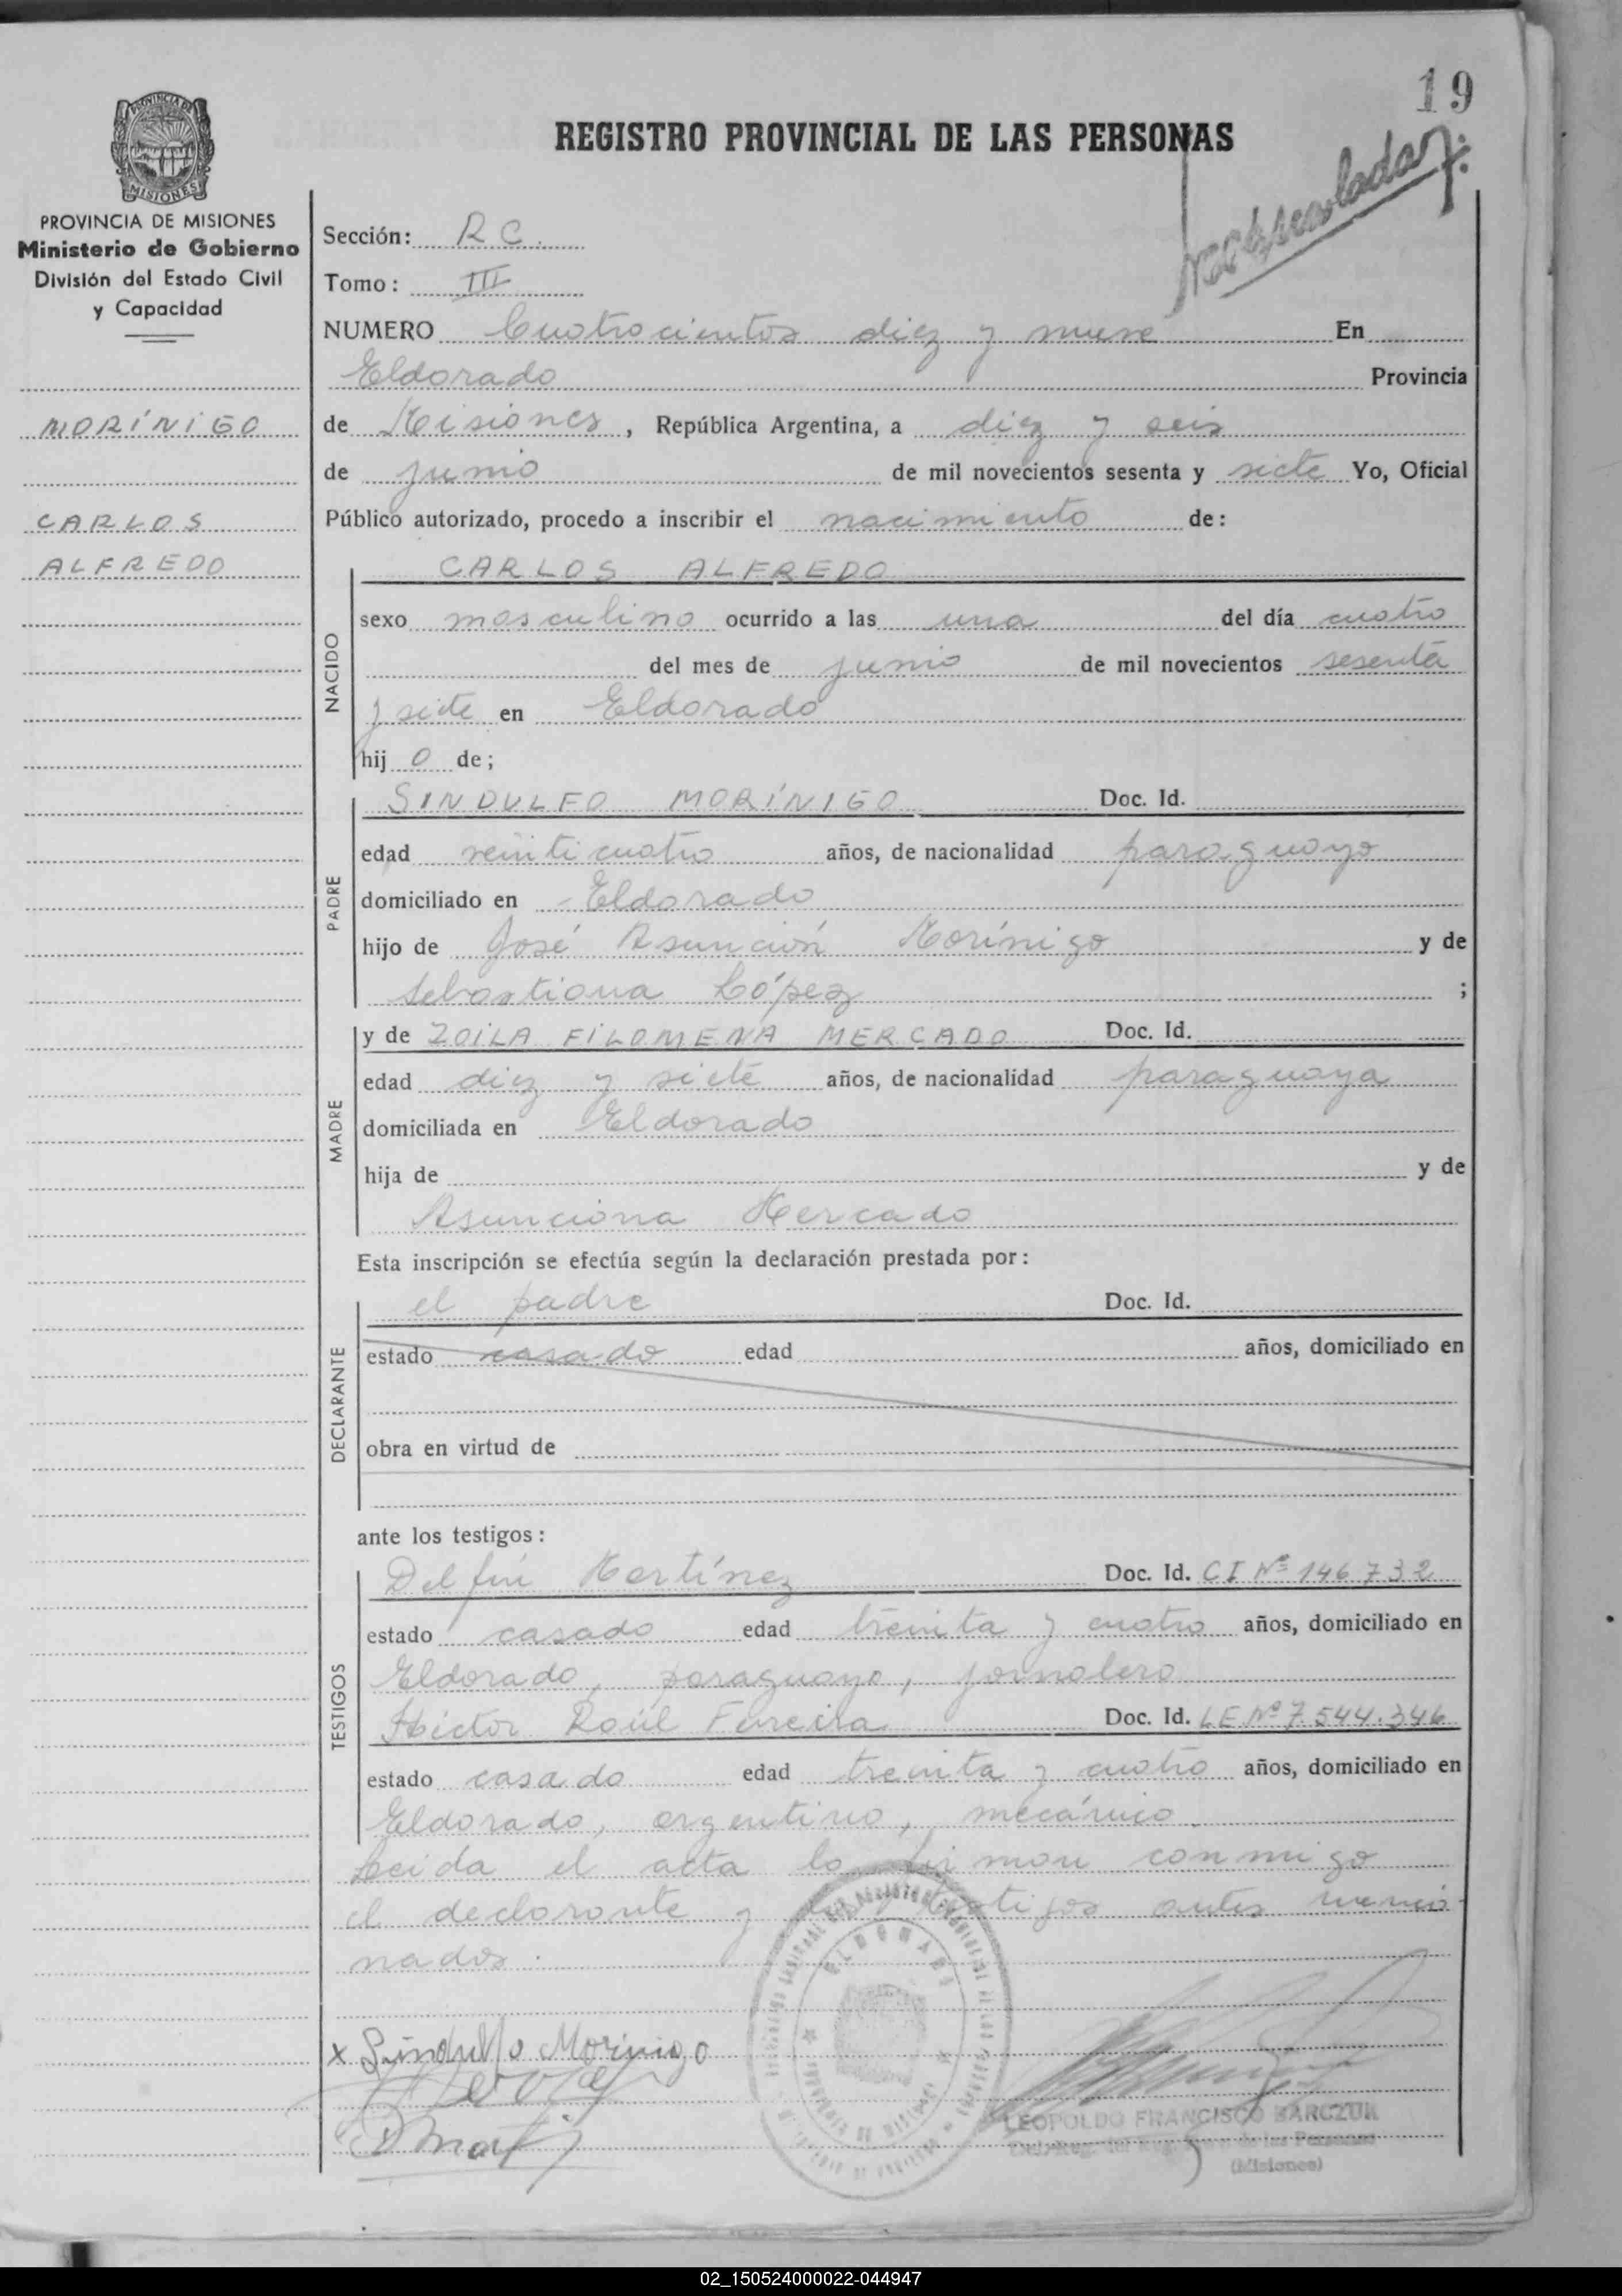 19
REGISTRO PROVINCIAL DE LAS PERSONAS
PROVINCIA DE
MISIONES
PROVINCIA DE MISIONES
Ministerio de Gobierno
División del Estado Civil
y Capacidad
MORÍNIGO
CARLOS
ALFREDO
Sección: R C.
Tomo: III
NUMERO Cuatrocientos diez y nueve En
Eldorado Provincia
de Misiones, República Argentina, a diez y seis
de junio de mil novecientos sesenta y siete Yo, Oficial
Público autorizado, procedo a inscribir el nacimiento de:
NACIDO
CARLOS ALFREDO
sexo masculino ocurrido a las una del día cuatro
del mes de junio de mil novecientos sesenta
y siete en Eldorado
hij o de;
PADRE
SINDULFO MORÍNIGO Doc. Id.
edad veinticuatro años, de nacionalidad paraguayo
domiciliado en Eldorado
hijo de José Asunción Morínigo y de
Sebastiana López ;
MADRE
y de ZOILA FILOMENA MERCADO Doc. Id.
edad diez y siete años, de nacionalidad paraguaya
domiciliada en Eldorado
hija de y de
Asunciona Mercado
Esta inscripción se efectúa según la declaración prestada por:
DECLARANTE
el padre Doc. Id.
estado casado edad años, domiciliado en
obra en virtud de
ante los testigos:
TESTIGOS
Delfín Martínez Doc. Id. CI Nº 146.732
estado casado edad treinta y cuatro años, domiciliado en
Eldorado, paraguayo, jornalero
Héctor Raúl Ferreira Doc. Id. LE Nº 7.544.346
estado casado edad treinta y cuatro años, domiciliado en
Eldorado, argentino, mecánico.
Leida el acta la firman conmigo
el declarante y los testigos antes mencio-
nados.
x Sindulfo Morinigo
ELDORADO
PROVINCIA DE MISIONES
LEOPOLDO FRANCISCO BARCZUK
de las Personas
(Misiones)
02_150524000022-044947